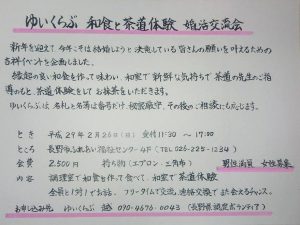 ゆいくらぶ 和食と茶道体験 婚活交流会
新年を迎えて 今年こそは結婚しようと 決意している皆さんの願いを叶えるための
吉祥イベントを企画しました。
縁起の良い和食を作って味わい、和室で 新鮮な気持ちで 茶道の先生のご指
導のもと、茶道体験をして お抹茶をいただきます。
ゆいくらぶは 名札と名簿は番号だけ、秘密厳守、その後の ご相談にも応じます。
とき 平成29年2月26日(日) 受付11:30 ~ 17:00
ところ 長野市ふれあい福祉センター4F (TEL 026-225-1234)
会費 2,500円 持ち物(エプロン・三角巾) 男性満員 女性募集
内容 調理室で 和食を作って食べて、和室で 茶道体験
全員と1対1でお話、フリータイムで交流、連絡交換で また会えるチャンス。
お申し込み先 ゆいくらぶ 越 090-4696-0043 (長野県認定ボランティア)